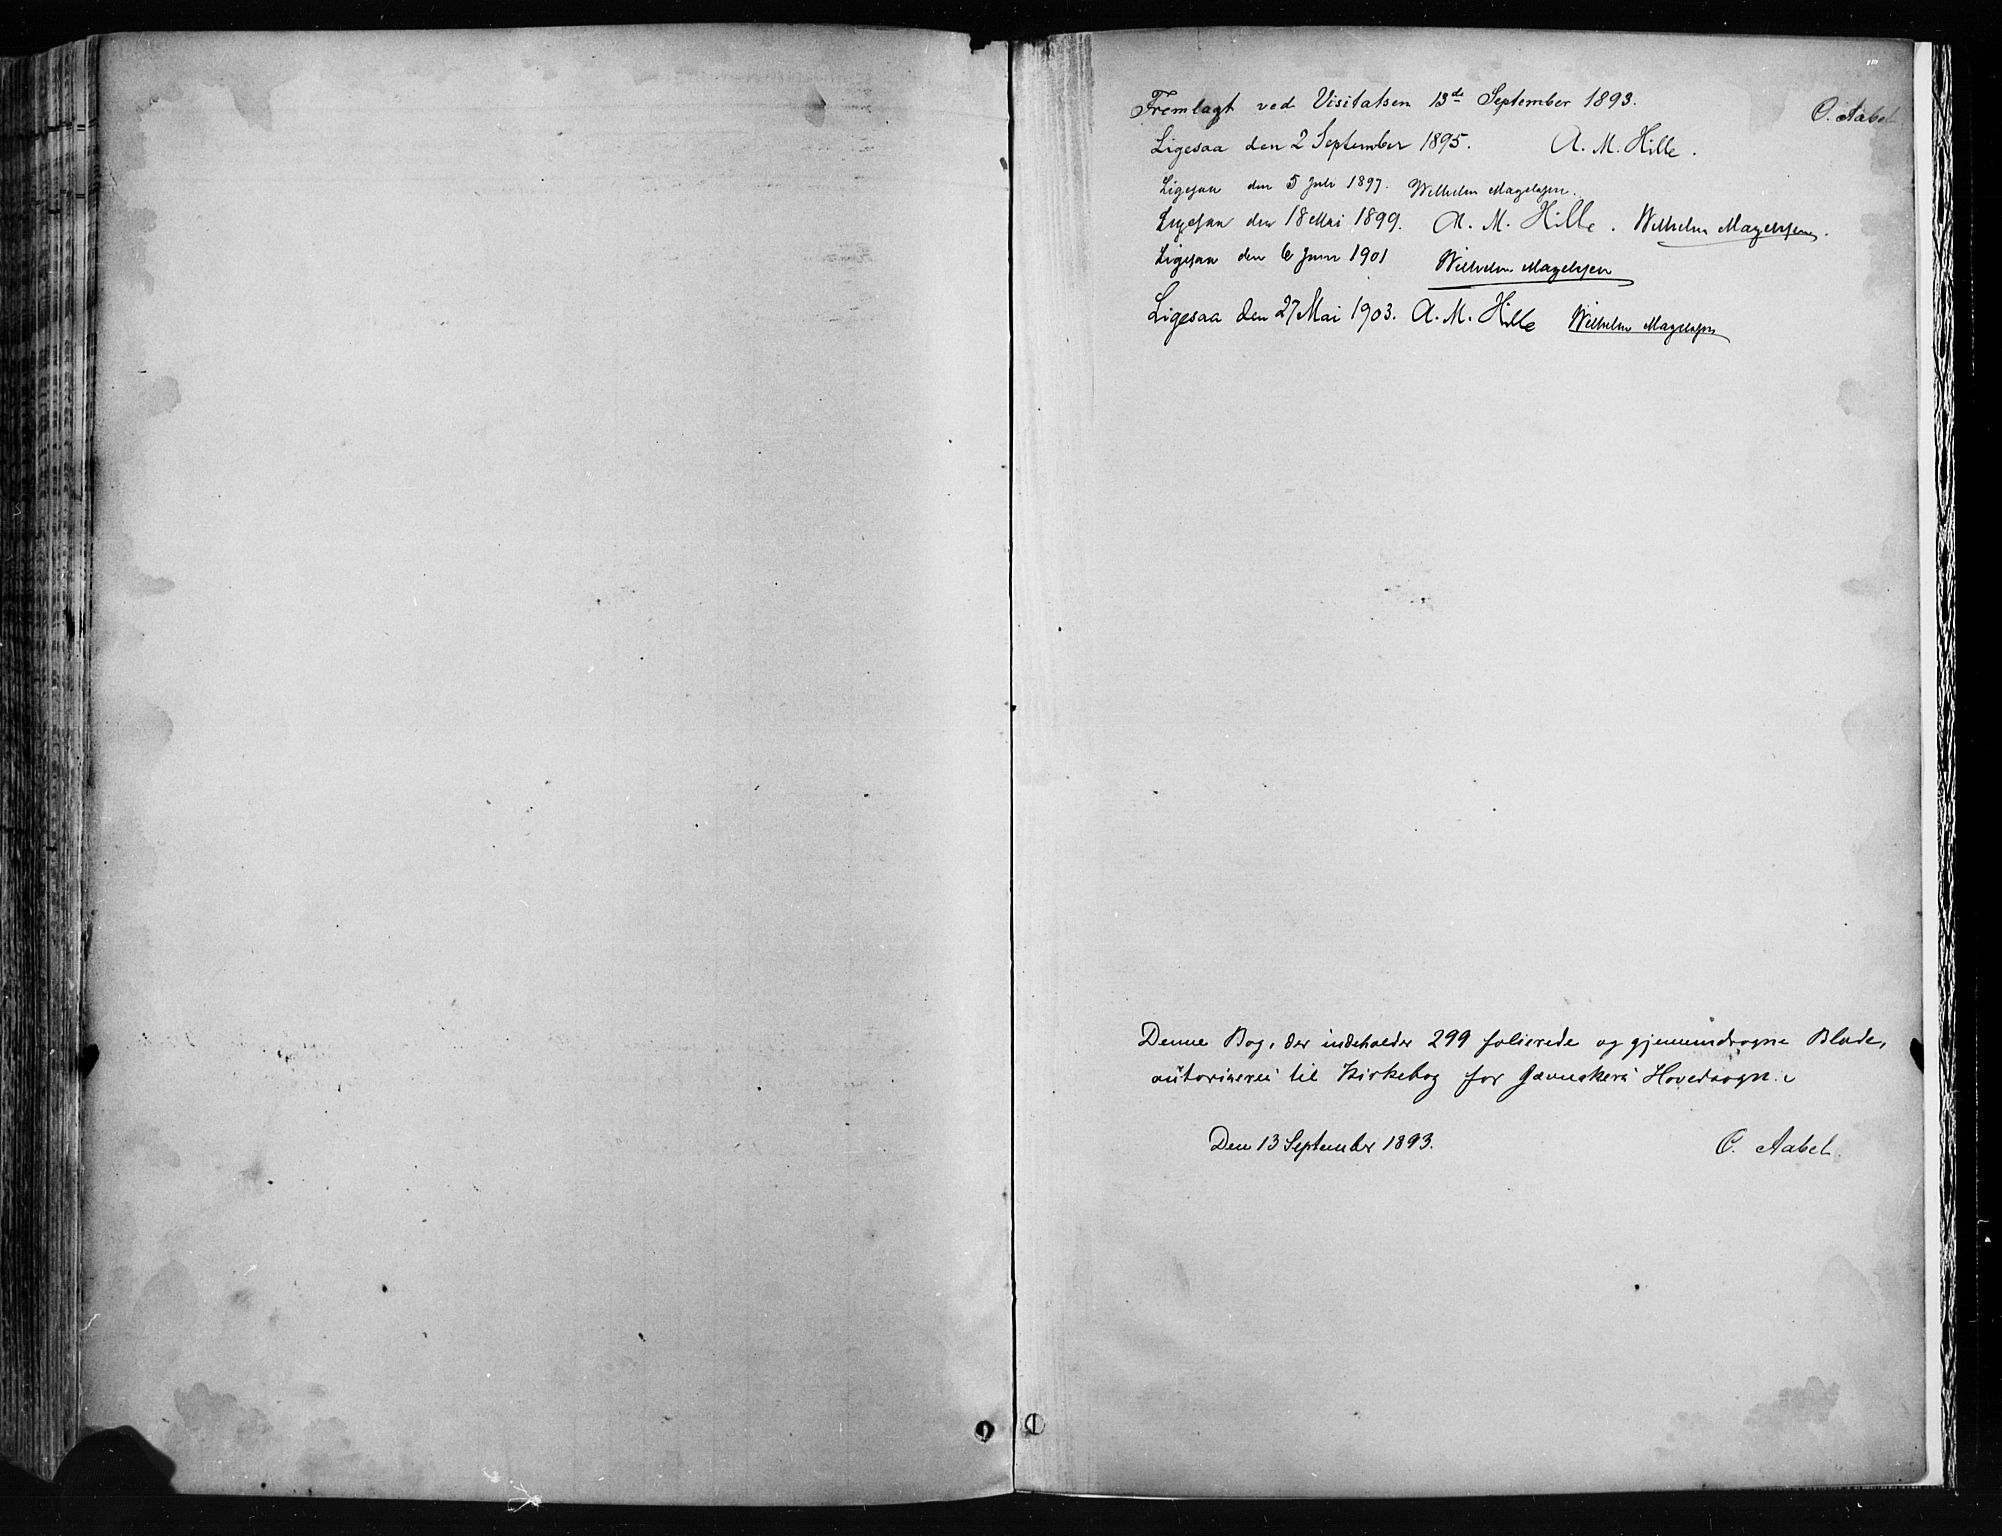 Fremlagt ved Visitatsen 13de September 1893. O. Aabel
Ligesaa den 2 September 1895. A. M. Hille.
Ligesaa den 5 Juli 1897. Wilhelm Magelssen.
Ligesaa den 18 Mai 1899. A. M. Hille. Wilhelm Magelssen.
Ligesaa den 6 Juni 1901 Wilhelm Magelssen
Ligesaa den 27 Mai 1903. A. M. Hille Wilhelm Magelssen
Denne Bog, der indeholder 299 folierede og gjennemdragne Blade,
autoriseres til Kirkebog for Jævnakers Hovedsogn.
Den 13 September 1893. O. Aabel.